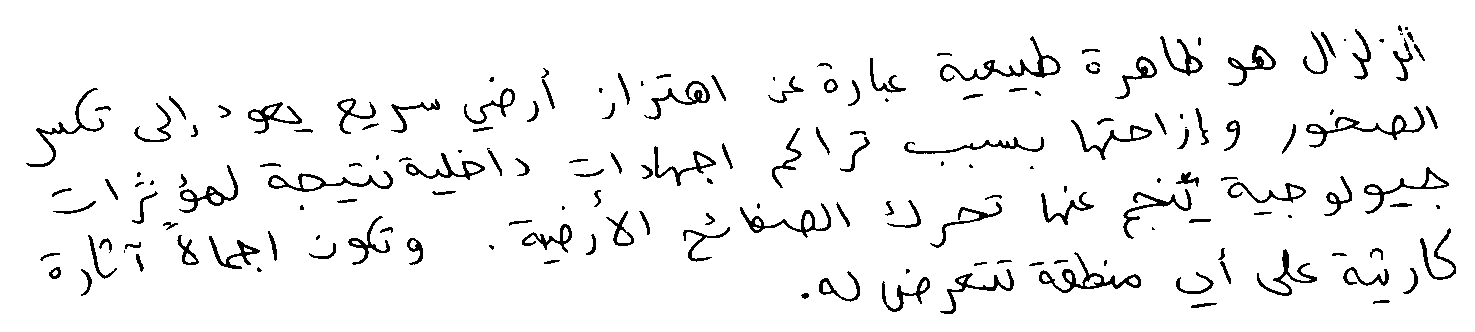 الزلزال هو ظاهرة طبيعية عبارة عن اهتزاز أرضي سريع يعود إلى تكسر
الصخور وإزاحتها بسبب تراكم اجهادات داخلية نتيجة لمؤثرات
جيولوجية ينجم عنها تحرك الصفائح الأرضية. وتكون اجمالاً آثاره
كارثية على أي منطقة تتعرض له.